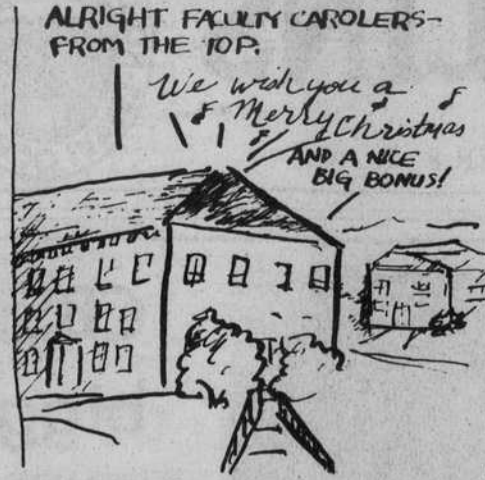 ALRIGHT FACULTY CAROLERS-
FROM THE TOP.
We wish you a
Merry Christmas
AND A NICE
BIG BONUS!